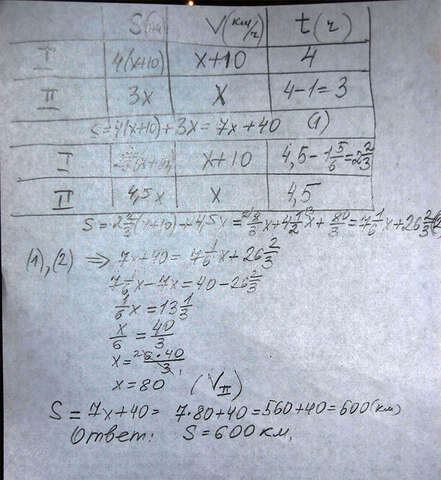 S(км) V(км/ч) t(ч)
I 4(x+10) x+10 4
II 3x x 4-1=3
S=4(x+10)+3x=7x+40 (1)
I x+10 4,5-1 5/6=2 2/3
II 4,5x x 4,5
S=2 2/3(x+10)+4,5x=2 2/3x+4 1/2x+80/3=7 1/6x+26 2/3 (2)
(1),(2) ⇒ 7x+40=7 1/6x+26 2/3
7 1/6x-7x=40-26 2/3
1/6x=13 1/3
x/6=40/3
x=6·40/3
x=80 (V II)
S=7x+40=7·80+40=560+40=600(км)
Ответ: S=600км.